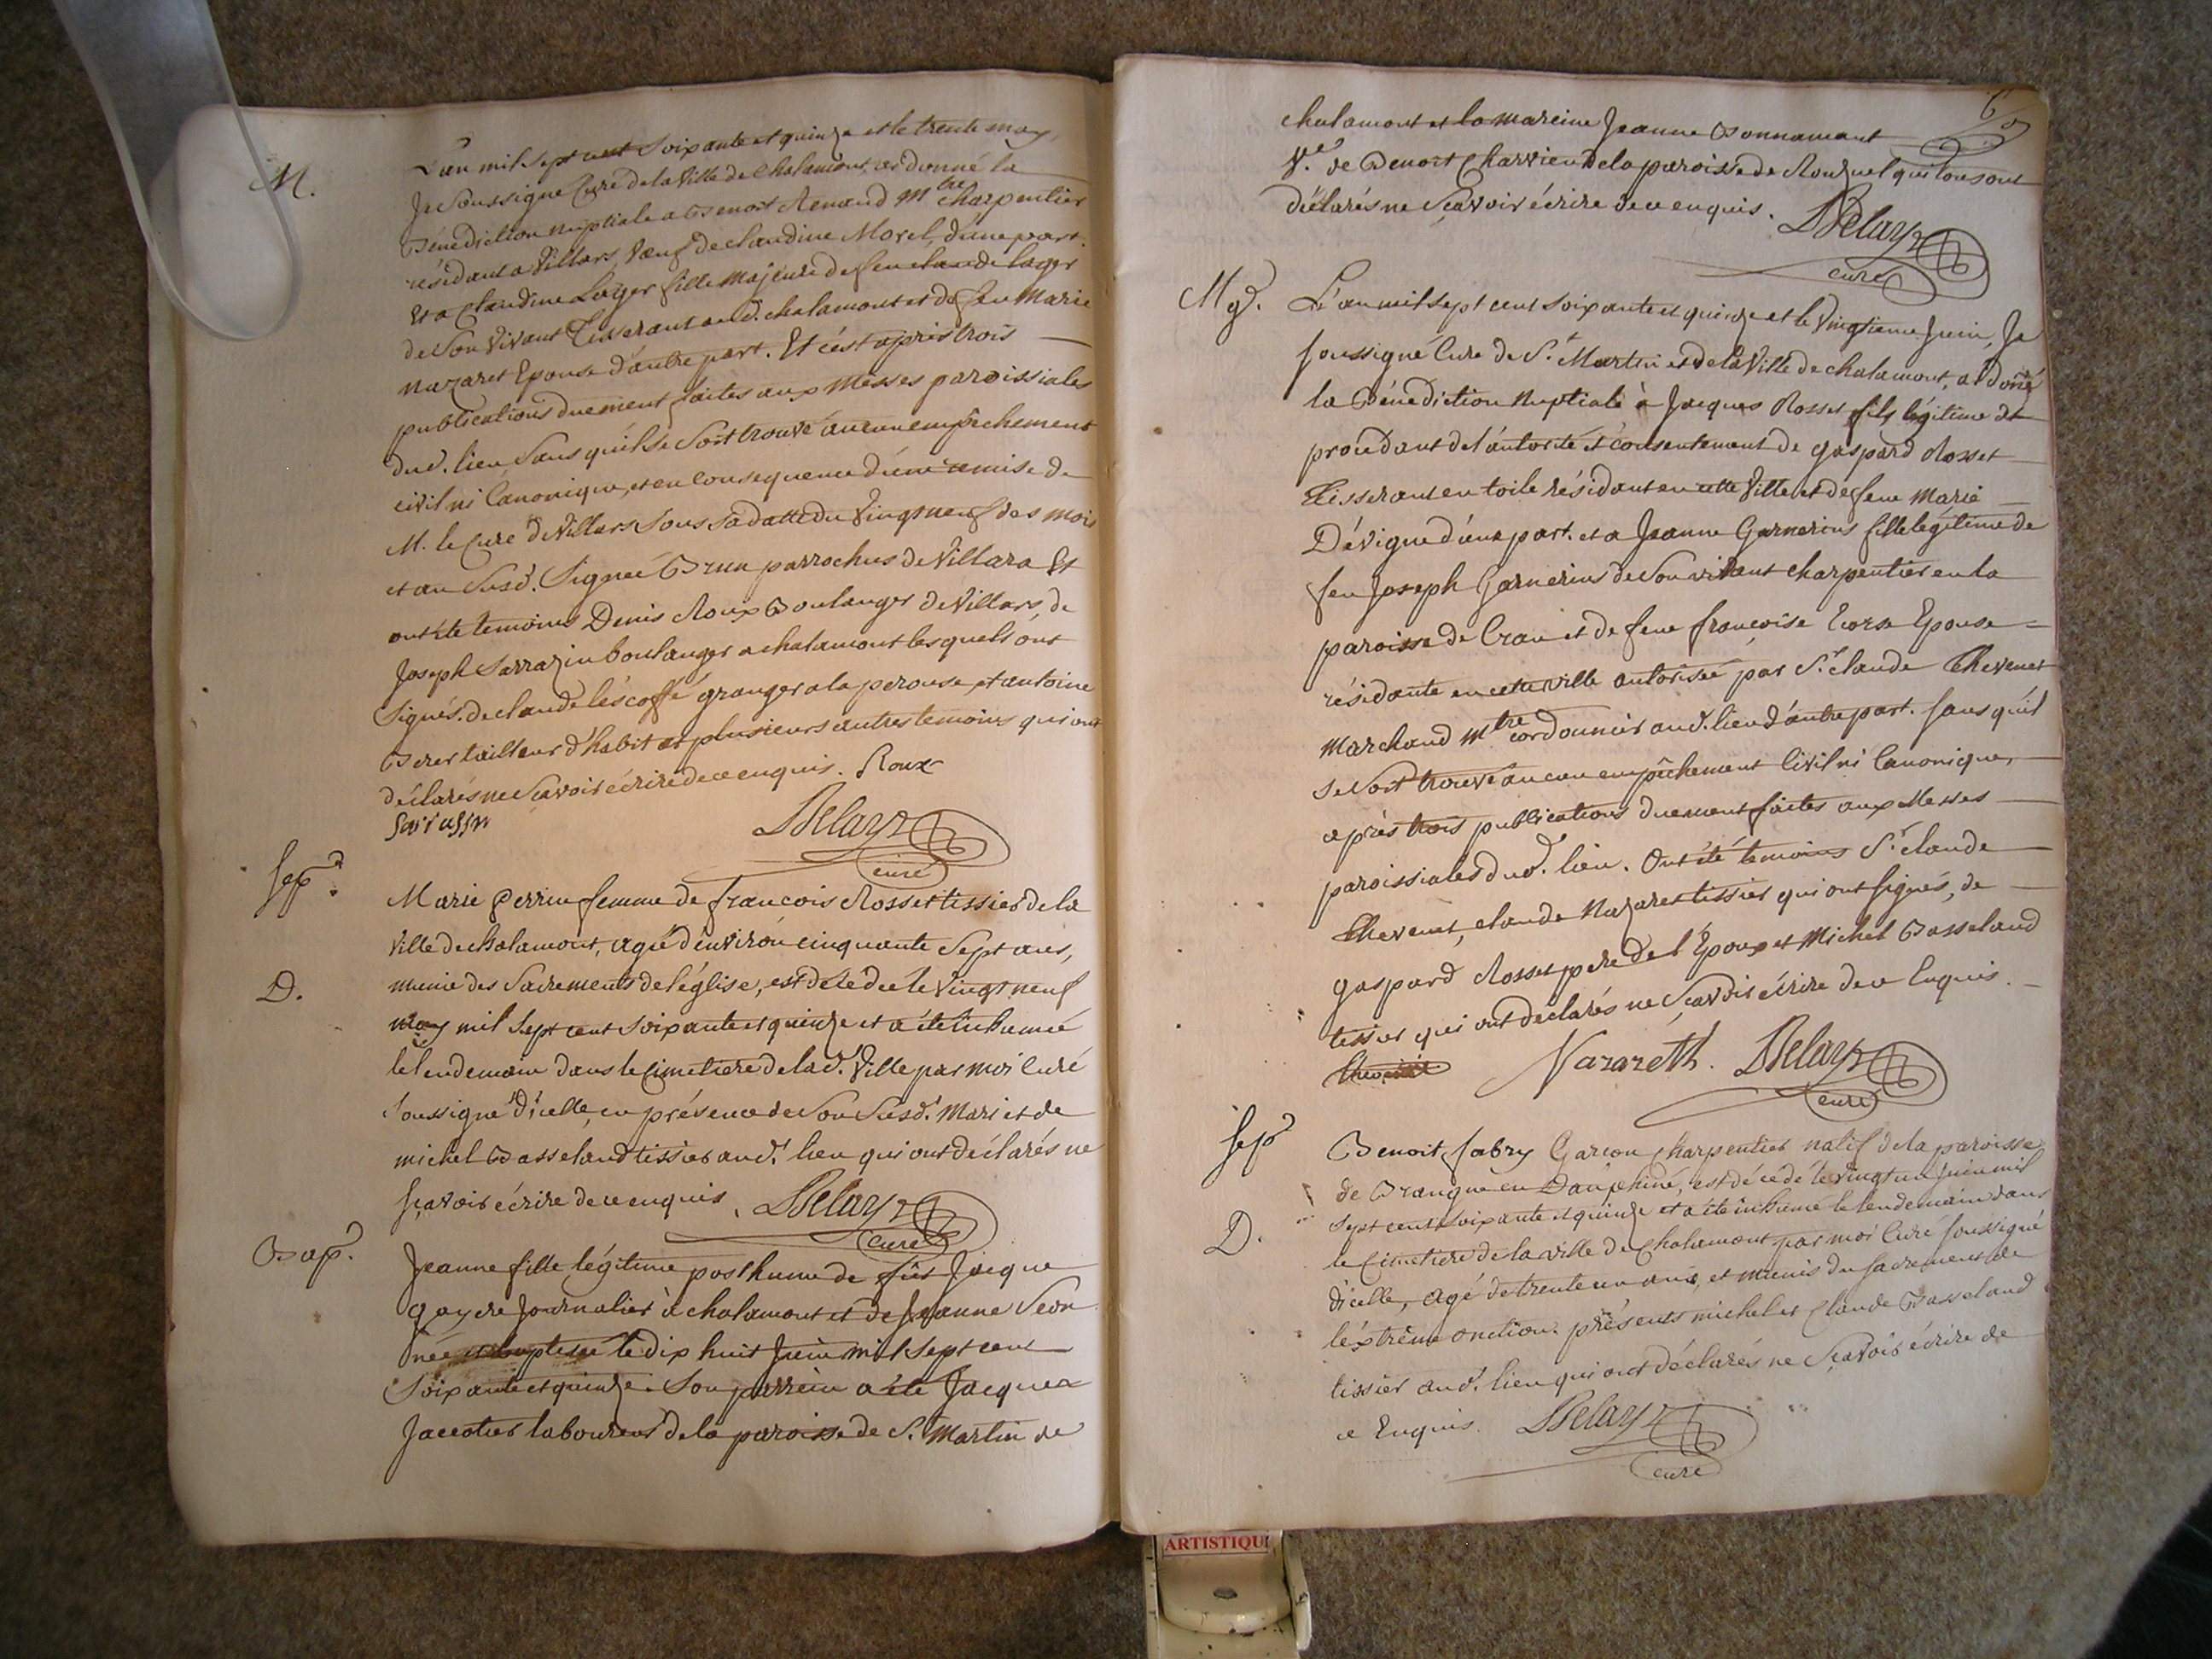 M.
L'an mil sept cent soixante et quinze et le trente may,
Je soussigné Curé de la Ville de Chalamont, ai donné la
Bénédiction nuptiale a Benoit Renaud Mtre Charpentier
résidant a Villars, Veuf de claudine Morel, d'une part.
Et a Claudine Loger fille majeure de feu claude loger
de Son vivant Tisserant aud. chalamont et de feu Marie
nazaret Epouse d'autre part. Et c'est après trois
publications duement faites aux Messes paroissiales
dud. lieu Sans qu'il se Soit trouvé aucun empêchement
civil ni Canonique, et en Consequence d'une remise de
M. le Curé de Villars Sous Sa datte du Vingt neuf des mois
et an Susd. Signée Brun parrochus de Villars Et
ont été temoins Denis Roux Boulanger de Villars, de
Joseph Sarrazin boulanger a chalamont lesquels ont
Signés. de claude lescoffé granger a la perouse, et antoine
tailleur d'habit et plusieurs autres temoins qui ont
déclarés ne Scavoir écrire de ce enquis. Roux
Sarasin
Delaye
curé
Sep.
D.
Marie Perrin femme de francois Rosset tissier de la
Ville de chalamont, agée d'environ cinquante Sept ans,
munie des Sacrements de l'église, est décédée le Vingt neuf
may mil Sept cent Soixante et quinze et a été inhumée
le lendemain dans le Cimetiere de lad. Ville par moi Curé
soussigné d'icelle, en présence de Son Susd. Mari et de
michel Basseland tissier aud. lieu qui ont déclarés ne
sçavoir écrire de ce enquis. Delaye
curé
Bap.
Jeanne fille légitime posthume de fût Jacque
goyere Journalier à chalamont et de Jeanne Seon
née et baptisée le dix huit Juin mil Sept cent
Soixante et quinze. Son parrein a été Jacques
Jacotier laboureur de la paroisse de St. Martin de
chalamont et la mareine Jeanne Bonnamant
Ve. de Benoit Charvieu de la paroisse de Ronzuel qui tous ont
déclarés ne Sçavoir écrire de ce enquis. Delaye
curé
Mg.
L'an mil sept cent soixante et quinze et le Vingtieme Juin, Je
soussigné Curé de St. Martin et de la Ville de chalamont, ai doné
la Bénédiction Nuptiale à Jacques Rosset fils légitime et
proüdant de l'autorité et consentement de gaspard Rosset
Tisserant en toile résidant en cette Ville et de feue Marie
Dévigne d'une part. et a Jeanne Garnerins fille légitime de
feu Joseph Garnerins de Son vivant charpentier en la
paroisse de Cran et de feue francoise Corse Epouse =
résidante en cette ville autorisée par Sr. claude Chevenet
Marchand Mtre cordonnier aud. lieu d'autre part. Sans qu'il
se Soit trouvé aucun empêchement Civil ni Canonique,
après trois publications duement faites aux Messes
paroissiales dud. lieu. Ont été temoins Sr. claude
Chevenet, claude Nazaret tissier qui ont signés, de
gaspard Rosset pere de l'Epoux et Michel Basseland
tissier qui ont déclarés ne Scavoir écrire de ce Enquis.
Nazareth. Delaye
curé
Sep
D.
Benoit fabry Garcon charpentier natif de la paroisse
de Brangue en Dauphiné, est décédé le Vingt un Juin mil
Sept cent soixante et quinze et a été inhumé le lendemain dans
le Cimetiere de la ville de Chalamont par moi Curé soussigné
d'icelle, agé de trente un ans, et munis du sacrement de
l'éxtrême onction. présents michel et Claude Basseland
tissier aud. lieu qui ont déclarés ne Sçavoir écrire de
ce Enquis. Delaye
curé
ARTISTIQU